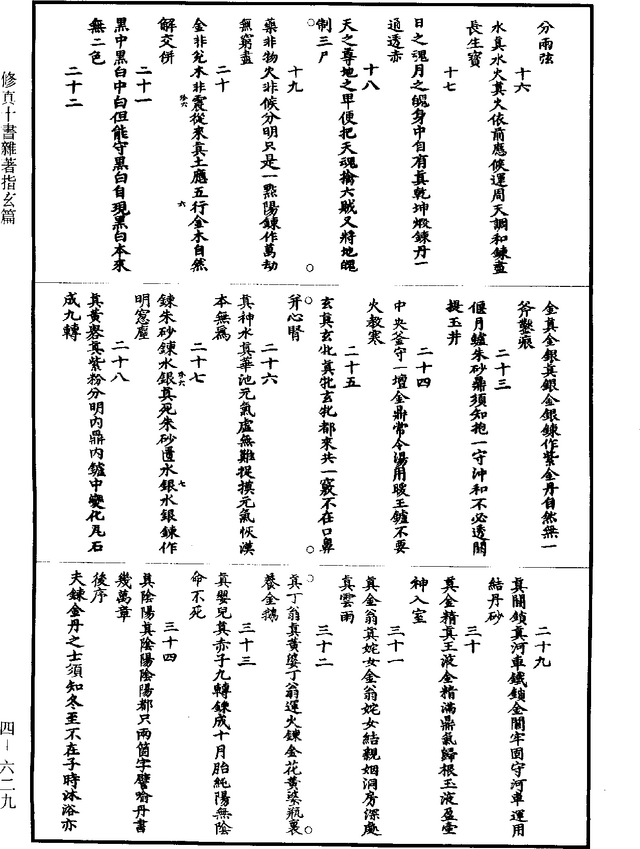 分兩弦
十六
水真水火真火依前應候運周天調和鍊盡
長生寶
十七
日之魂月之魄身中自有真乾坤煅鍊丹一
通透赤
十八
天之尊地之卑便把天魂擒六賊又將地魄
制三尸
十九
藥非物火非候分明只是一點陽鍊作萬劫
無窮壽
二十
金非兌木非震從來真土應五行金木自然
解交併
二十一
黑中黑白中白但能守黑白自現黑白本來
無二色
二十二
金真金銀真銀金銀鍊作紫金丹自然無一
斧鑿痕
二十三
偃月鑪朱砂鼎須知抱一守沖和不必透關
提玉井
二十四
中央釜守一壇金鼎常令湯用暖玉鑪不要
火教寒
二十五
玄真玄牝真牝玄牝都來共一竅不在口鼻
并心腎
二十六
真神水真華池元氣虛無難捉摸元氣恢漠
本無為
二十七
鍊朱砂鍊水銀真死朱砂遇水銀水銀鍊作
明窻塵
二十八
真黃轝真紫粉分明內鼎內鑪中變化瓦石
成九轉
二十九
真關鎖真河車鐵鎖金關牢固守河車運用
結丹砂
三十
真金精真玉液金精滿鼎氣歸根玉液盈壺
神入室
三十一
真金翁真姹女金翁姹女結親姻洞房深處
真雲雨
三十二
真丁翁真黃婆丁翁運火鍊金花黃婆瓶裏
養金鵝
三十三
真嬰兒真赤子九轉鍊成十月胎純陽無陰
命不死
三十四
真陰陽真陰陽陰陽都只兩箇字譬喻丹書
幾萬章
後序
夫鍊金丹之士須知冬至不在子時沐浴亦
修真十書雜著指玄篇
四-六二九